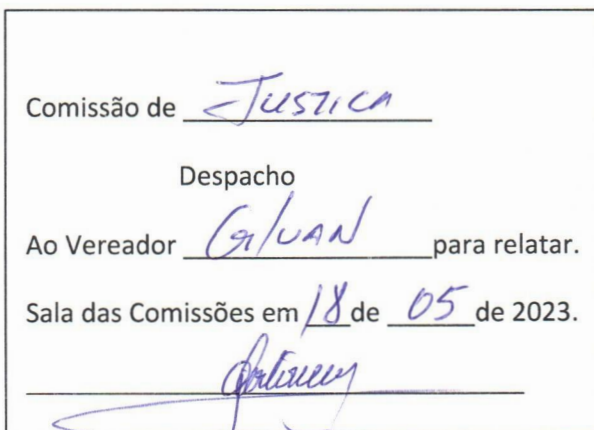 Comissão de Justica
Despacho
Ao Vereador Gilvan para relatar.
Sala das Comissões em 18 de 05 de 2023.